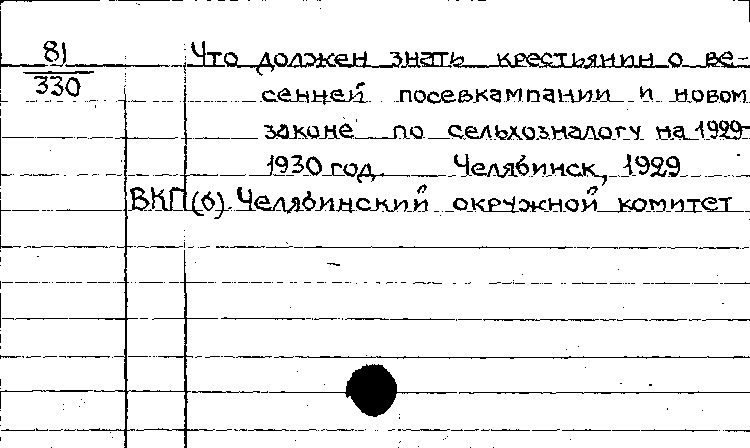 81
330
Что должен знать крестьянин о ве-
сенней посевкампании и новом
законе по сельхозналогу на 1929-
1930 год. Челябинск, 1929
ВКП(б). Челябинский окружной комитет